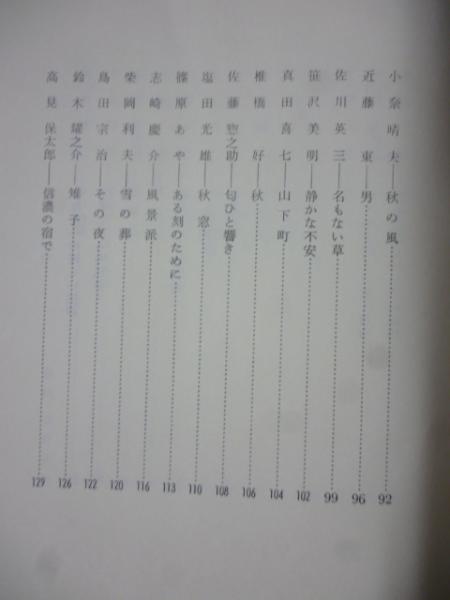 小奈晴夫――秋の風……92
近藤東――男……96
佐川英三――名もない草……99
笹沢美明――静かな不安……102
真田喜七――山下町……104
椎橋好――秋……106
佐藤惣之助――匂ひと響き……108
塩田光雄――秋窓……110
篠原あや――ある刻のために……113
志崎慶介――風景派……116
柴岡利夫――雪の葬……120
島田宗治――その夜……122
鈴木耀之介――雉子……126
高見保太郎――信濃の宿で……129